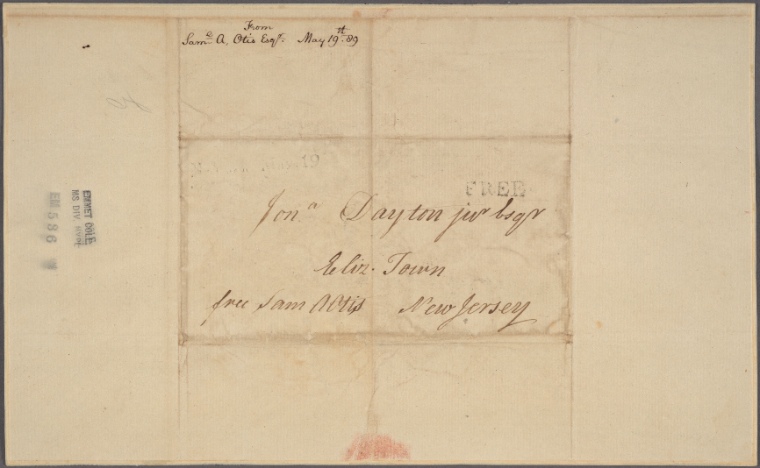 From
Sam.l A. Otis Esqr. May 19th. 89
19
FREE
Jona Dayton junr Esqr
Eliz. Town
free Sam A Otis New Jersey
EMMET COLL.
MS DIV. NYPL
EM 586